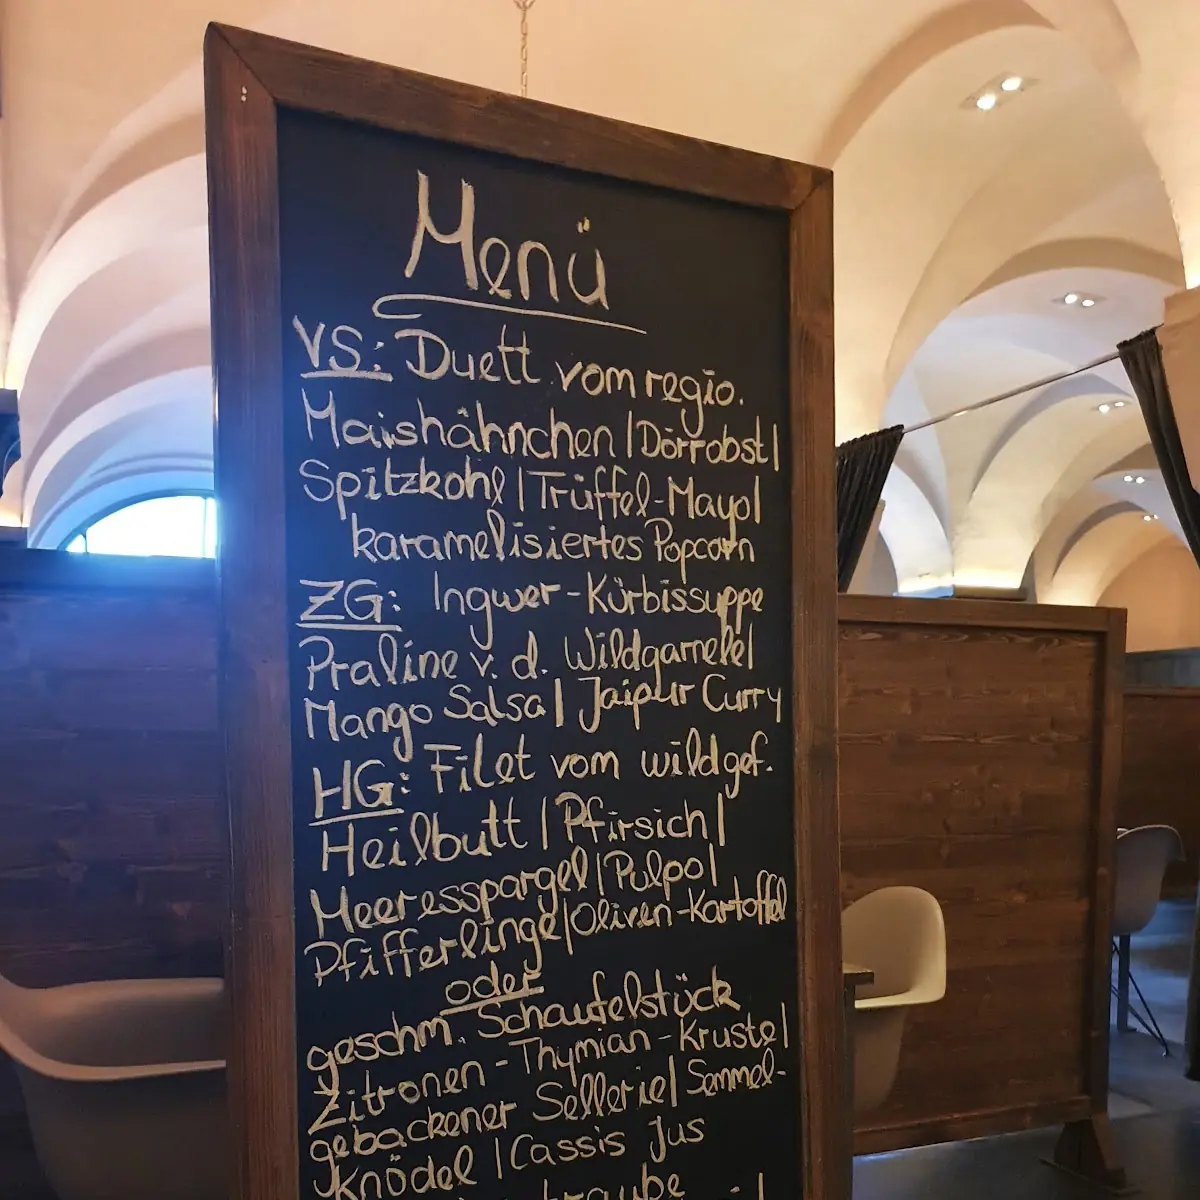 Menü
VS: Duett vom regio.
Maishähnchen | Dörrobst |
Spitzkohl | Trüffel-Mayo |
karamelisiertes Popcorn
ZG: Ingwer-Kürbissuppe
Praline v. d. Wildgarnele |
Mango Salsa | Jaipur Curry
HG: Filet vom wildgef.
Heilbutt | Pfirsich |
Meeresspargel | Pulpo |
Pfifferlinge | Oliven-Kartoffel
oder
geschm. Schaufelstück
Zitronen-Thymian-Kruste |
gebackener Sellerie | Semmel-
Knödel | Cassis Jus